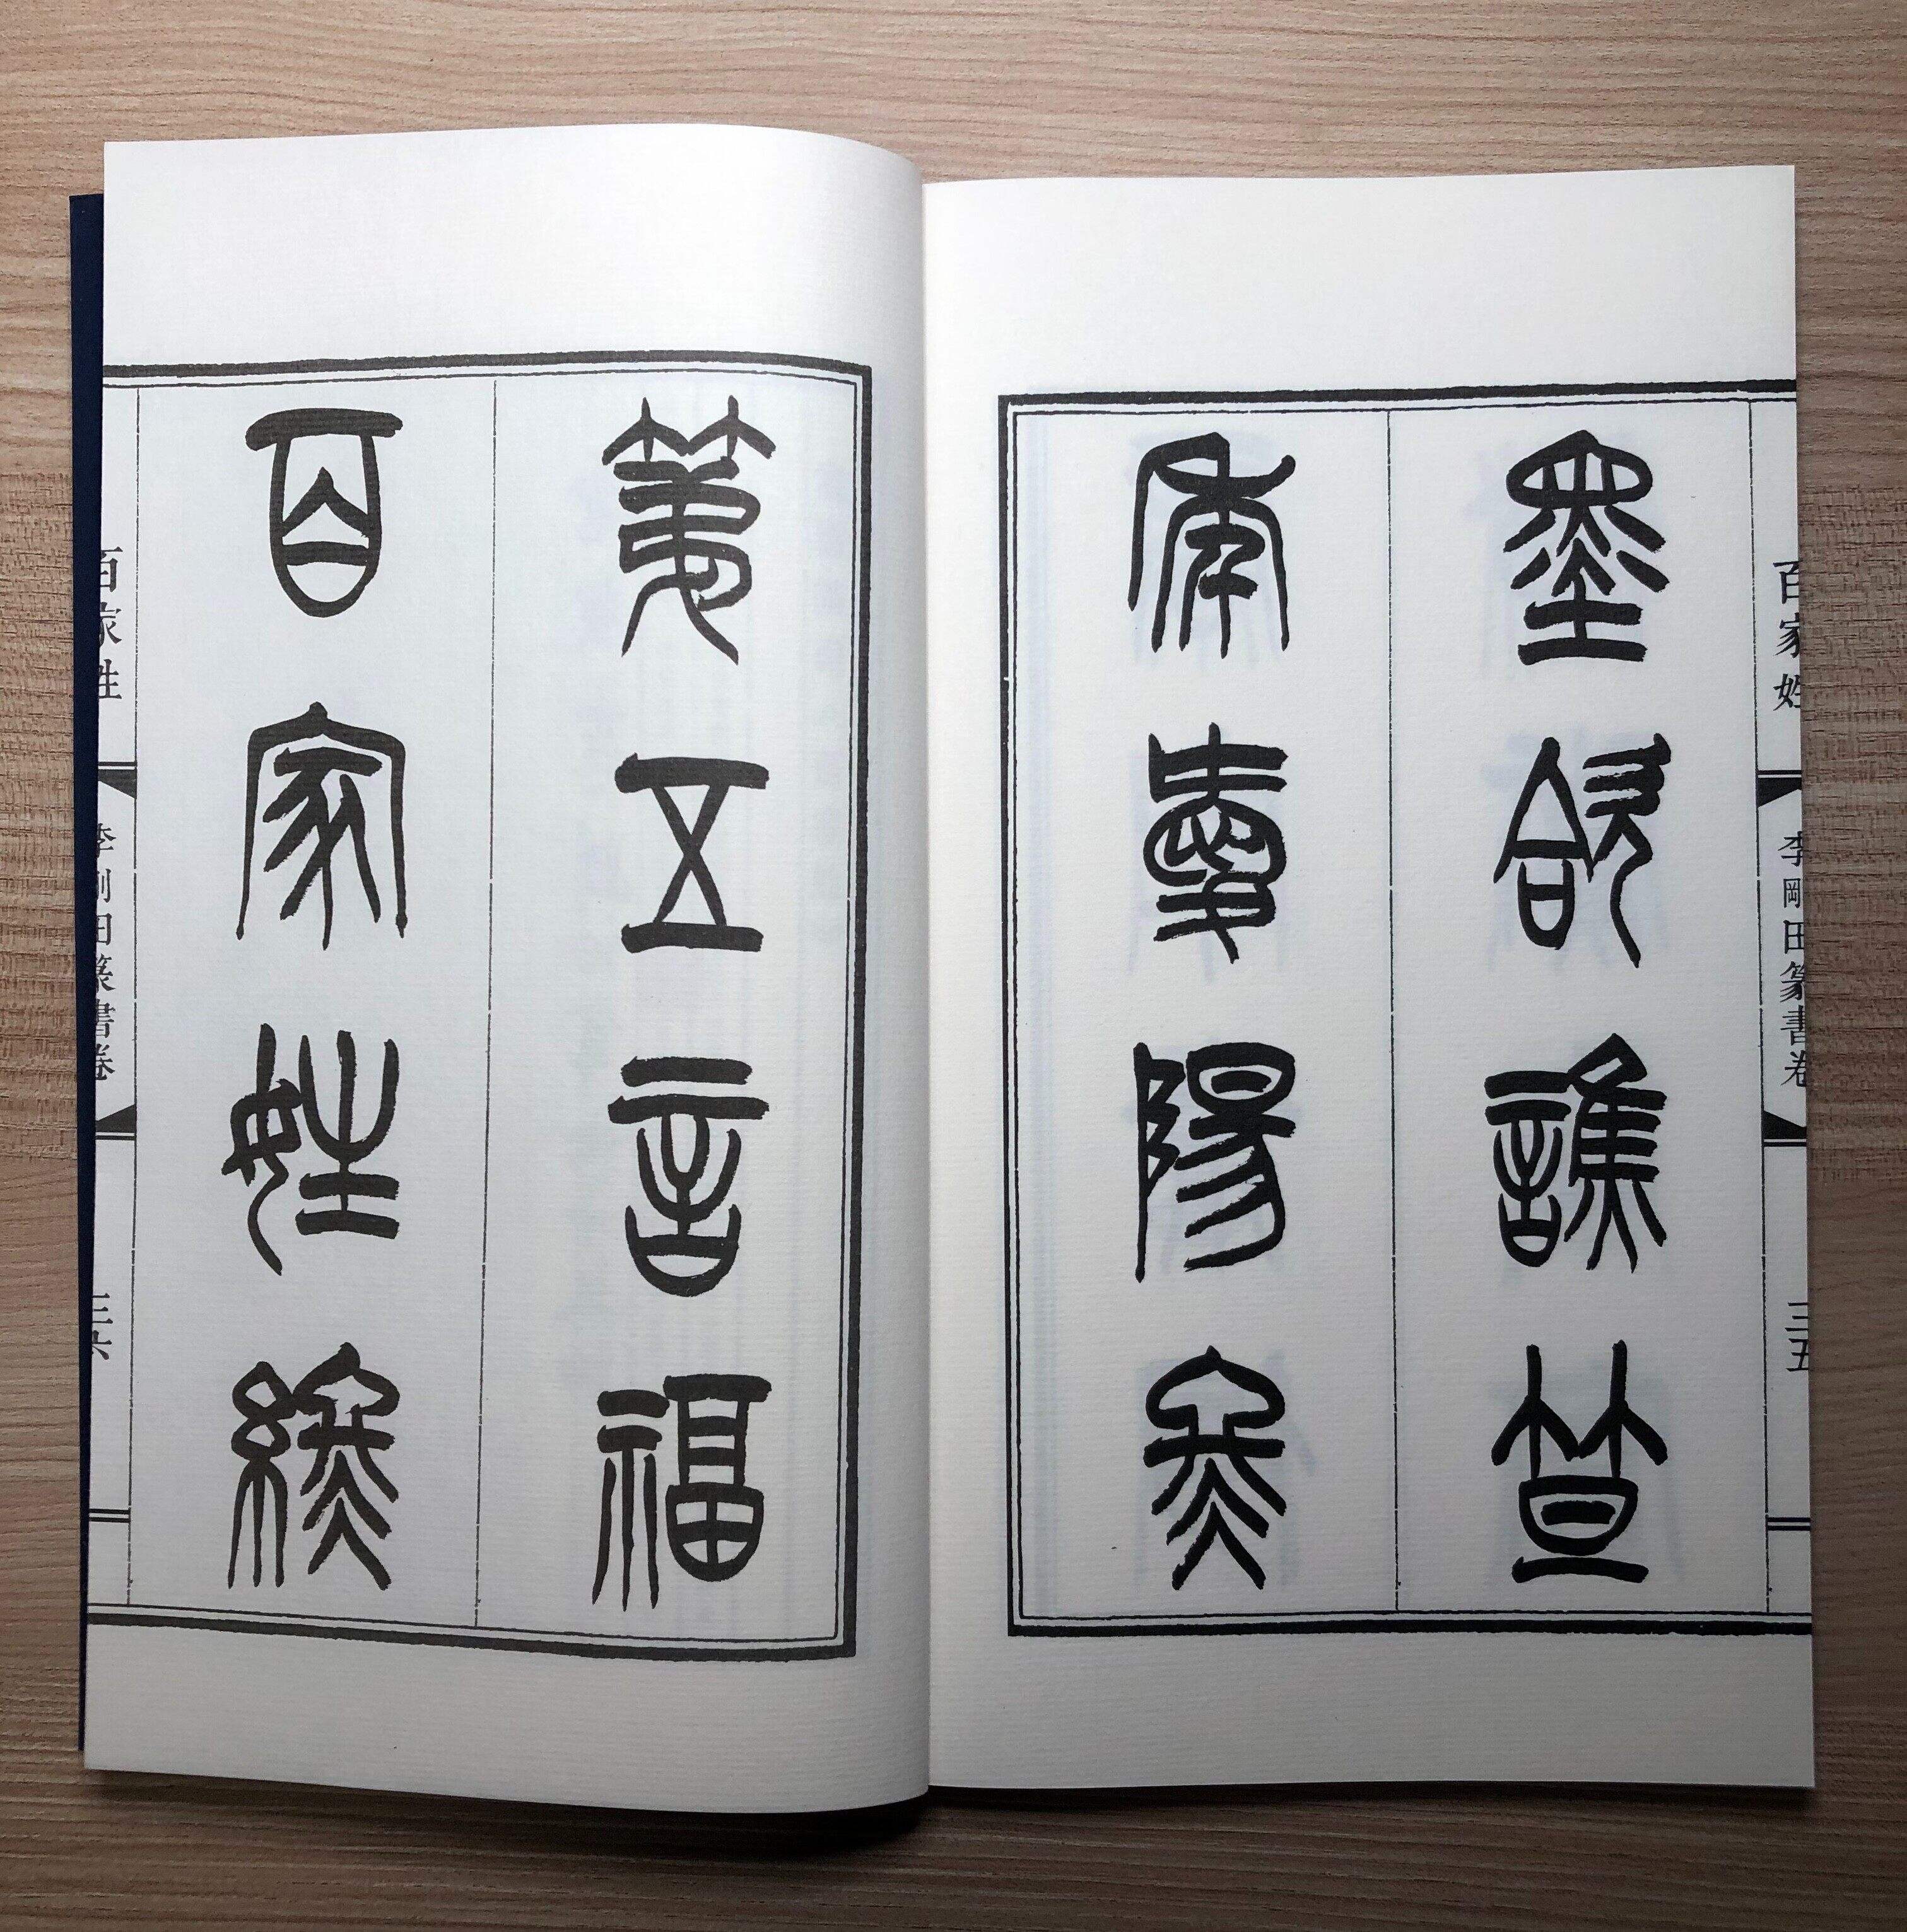 百家姓 李剛田篆書卷 三五
墨哈譙笪
年愛陽佟
第五言福
百家姓終
百家姓 李剛田篆書卷 三六